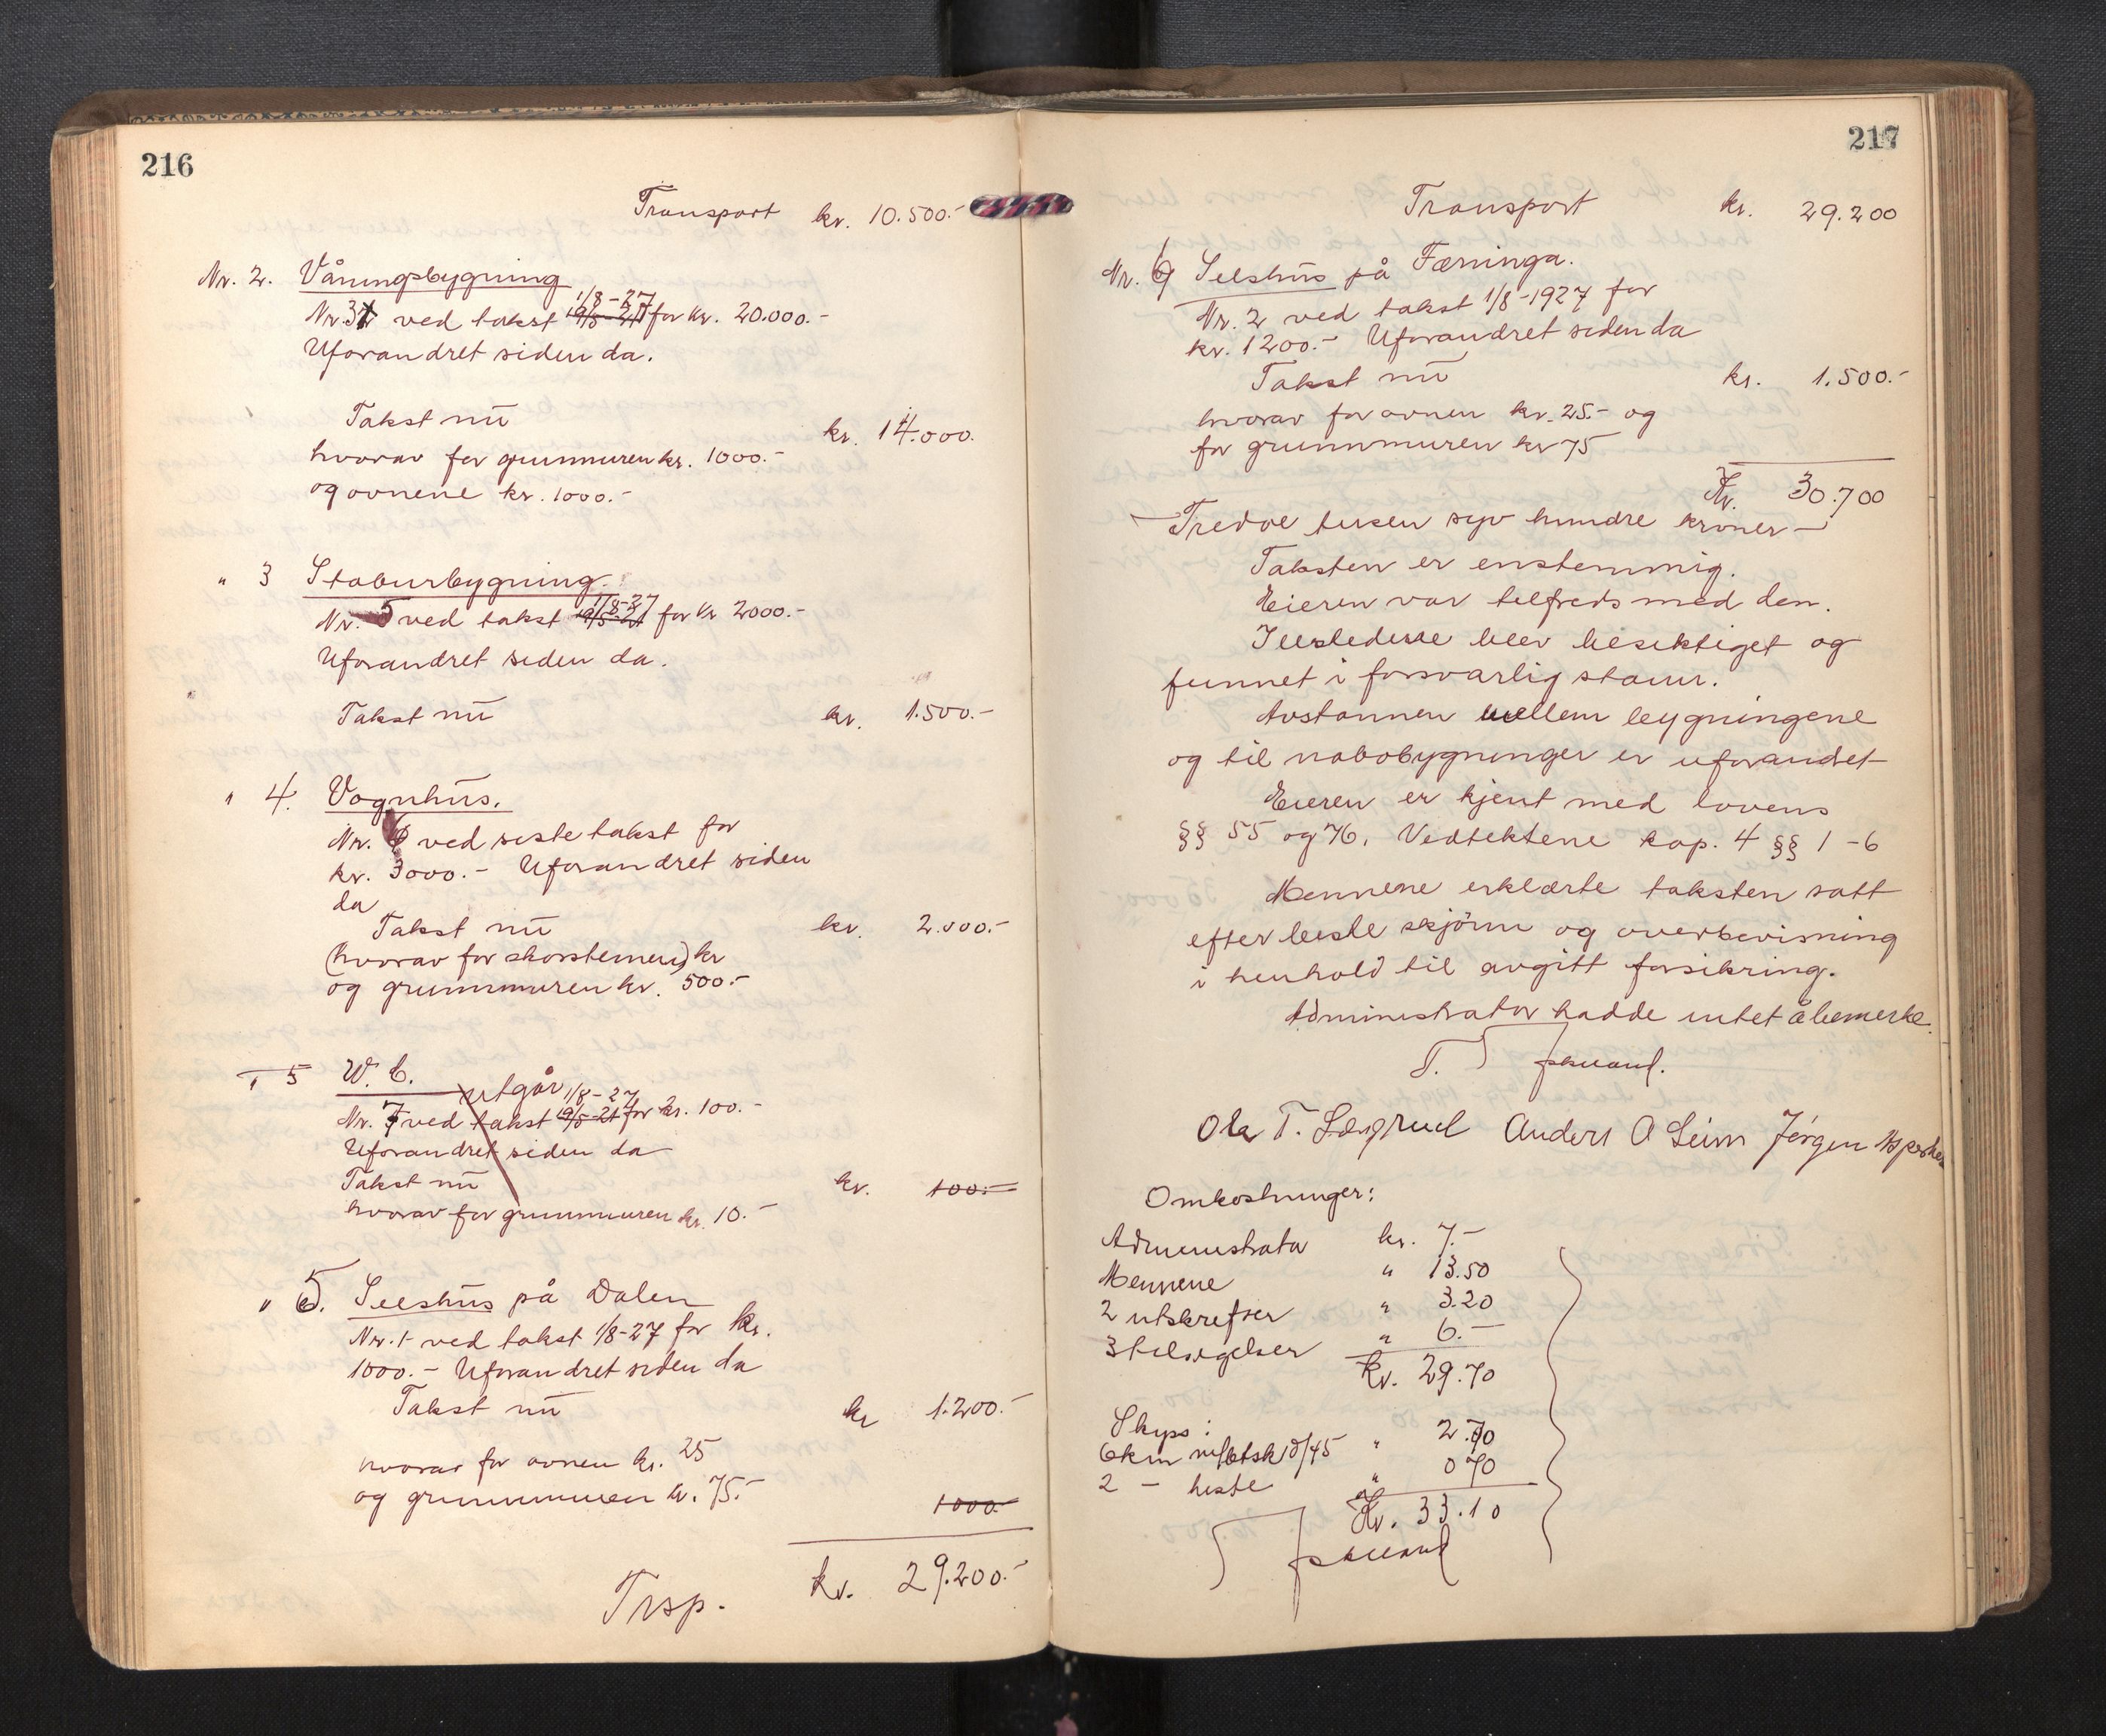 216
Transport kr. 10.500.-
Nr. 2. Våningsbygning
1/8-27
Nr. 3 ved takst 19/5-21 for kr. 20.000.-
Uforandret siden da.
Takst nu kr. 14.000.
hvorav for grunmuren kr. 1000.-
og ovnene kr. 1000.-
" 3 Staburbygning.
1/8-27
Nr. 5 ved takst 19/5-21 for kr 2000.-
Uforandret siden da.
Takst nu kr. 1.500.-
" 4. Vognhus.
Nr. 6 ved siste takst for
kr. 3000.- Uforandret siden
da
Takst nu kr. 2.000.-
(hvorav for skorstenen) kr
og grunnmuren kr. 500.-
" 5 W.C.
utgår 1/8-27
Nr. 7 ved takst 19/5-21 for kr. 100.-
Uforandret siden da
Takst nu kr. 100.-
hvorav for grunnmuren kr. 10.-
" 5. Selshus på Dalen
Nr. 1 ved takst 1/8-27 for kr.
1000.- Uforandret siden da
Takst nu kr 1.200.-
hvorav for ovnen kr. 25
og grunnmuren kr. 75.-
1000
Trsp. kr. 29.200.-
217
Transport kr. 29.200
Nr. 6 Selshus på Færninga.
Nr. 2 ved takst 1/8-1927 for
kr. 1200.- Uforandret siden da
Takst nu kr. 1.500.-
hvorav for ovnen kr. 25.- og
for grunnmuren kr 75
Kr. 30.700
-Tredve tusen syv hundre kroner-
Taksten er enstemmig.
Eieren var tilfreds med den.
Ildstederne blev besiktiget og
funnet i forsvarlig stann.
Avstannen mellem bygningene
og til nabobygninger er uforandret
Eieren er kjent med lovens
§§ 55 og 76. Vedtektene kap. 4 §§ 1-6
Mennene erklærte taksten satt
efter beste skjönn og overbevisning
i henhold til avgitt forsikring.
Administrator hadde intet å bemerke.
Ola T. Lægreid Anders O Leirn Jørgen
Omkostninger:
Administrator kr. 7.-
Mennene " 13.50
2 utskrefter " 3.20
3 tilsigelser " 6.-
Kr. 29.70
Skyss:
6 km m/ " 2.70
2 - heste " 0 70
Kr. 33.10